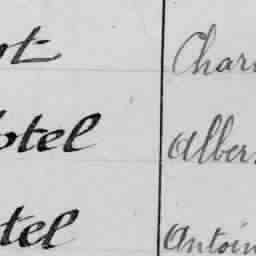 ot Char
otel Alber
tel Antoin